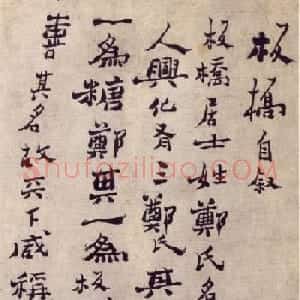 板橋自敘
板橋居士姓鄭氏名
人興化有三鄭氏其
一為糖鄭其一為板
書其名故天下咸稱
Shufaziliao.com